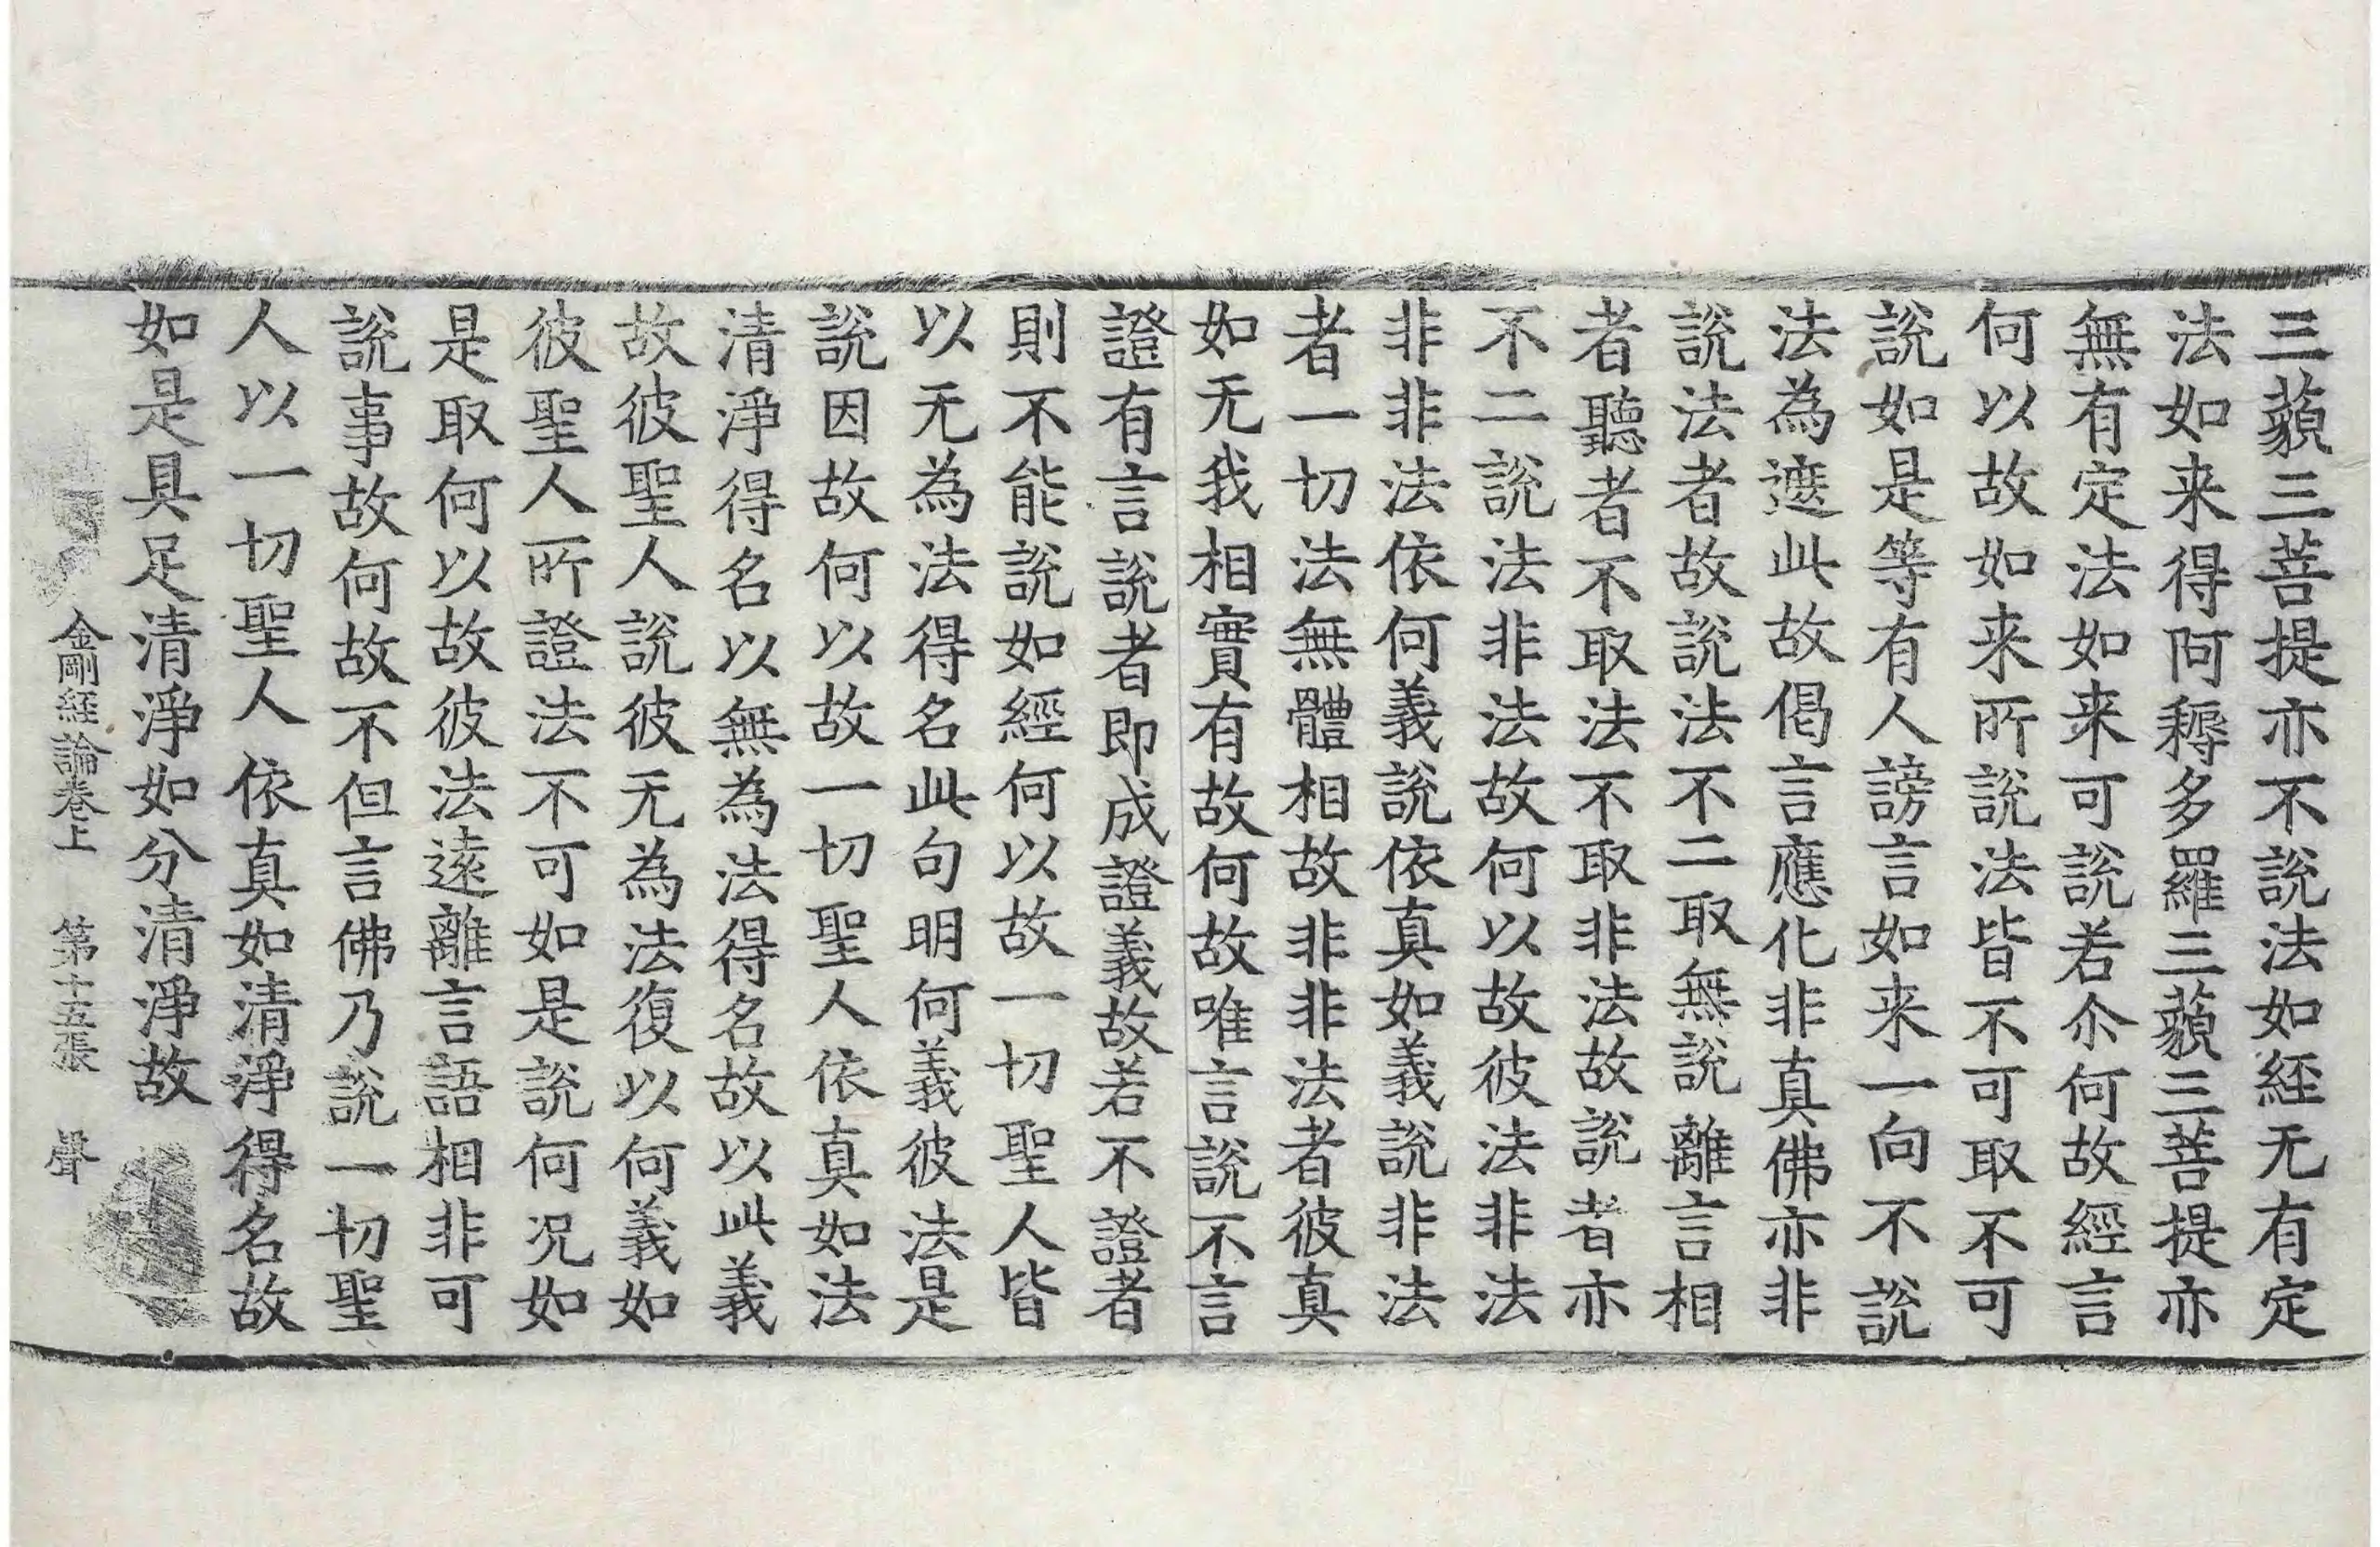 三藐三菩提亦不說法如經无有定
法如来得阿耨多羅三藐三菩提亦
無有定法如来可說若尒何故經言
何以故如来所說法皆不可取不可
說如是等有人謗言如来一向不說
法為遮此故偈言應化非真佛亦非
說法者故說法不二取無說離言相
者聽者不取法不取非法故說者亦
不二說法非法故何以故彼法非法
非非法依何義說依真如義說非法
者一切法無體相故非非法者彼真
如无我相實有故何故唯言說不言
證有言說者即成證義故若不證者
則不能說如經何以故一切聖人皆
以无為法得名此句明何義彼法是
說因故何以故一切聖人依真如法
清淨得名以無為法得名故以此義
故彼聖人說彼无為法復以何義如
彼聖人所證法不可如是說何况如
是取何以故彼法遠離言語相非可
說事故何故不但言佛乃說一切聖
人以一切聖人依真如清淨得名故
如是具足清淨如分清淨故
金剛經論卷上 第十五張 聲